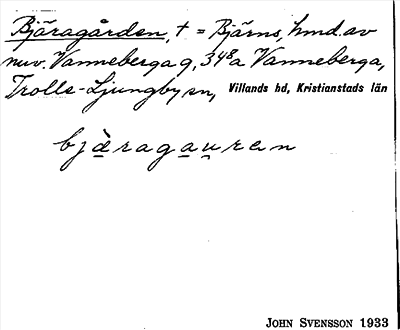 Bjäragården, † = Bjärns, hmd. av
nuv. Vanneberga g, 34⁸a Vanneberga,
Trolle-Ljungby sn, Villands hd, Kristianstads län
bjäragauren
JOHN SVENSSON 1933